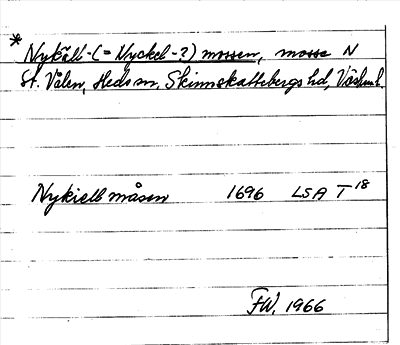 * Nykäll-(= Nyckel-?) mossen, mosse N
St. Valen, Heds sn, Skinnskattebergs hd, Västml.
Nykiell måsen 1696 LSA T 18
FW, 1966